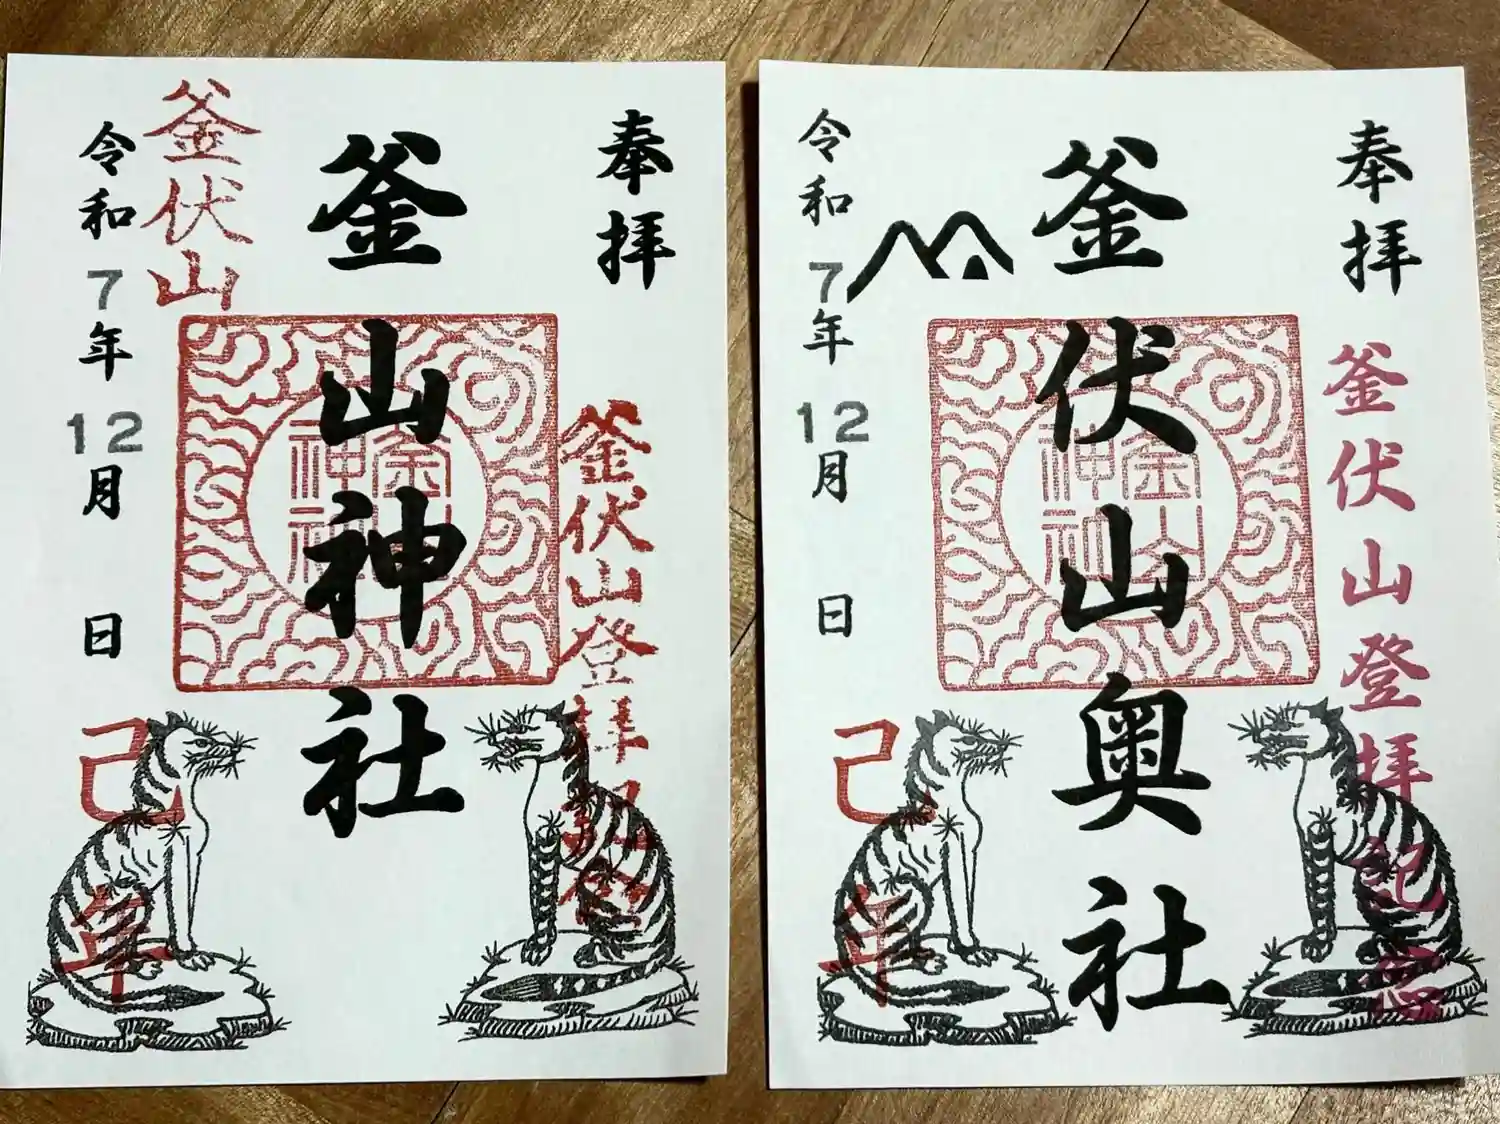 奉拝
釜伏山登拝記念
釜山神社
釜山
神社
釜伏山
令和7年12月 日
己年
奉拝
釜伏山登拝記念
釜伏山奥社
釜山
神社
令和7年12月 日
己年